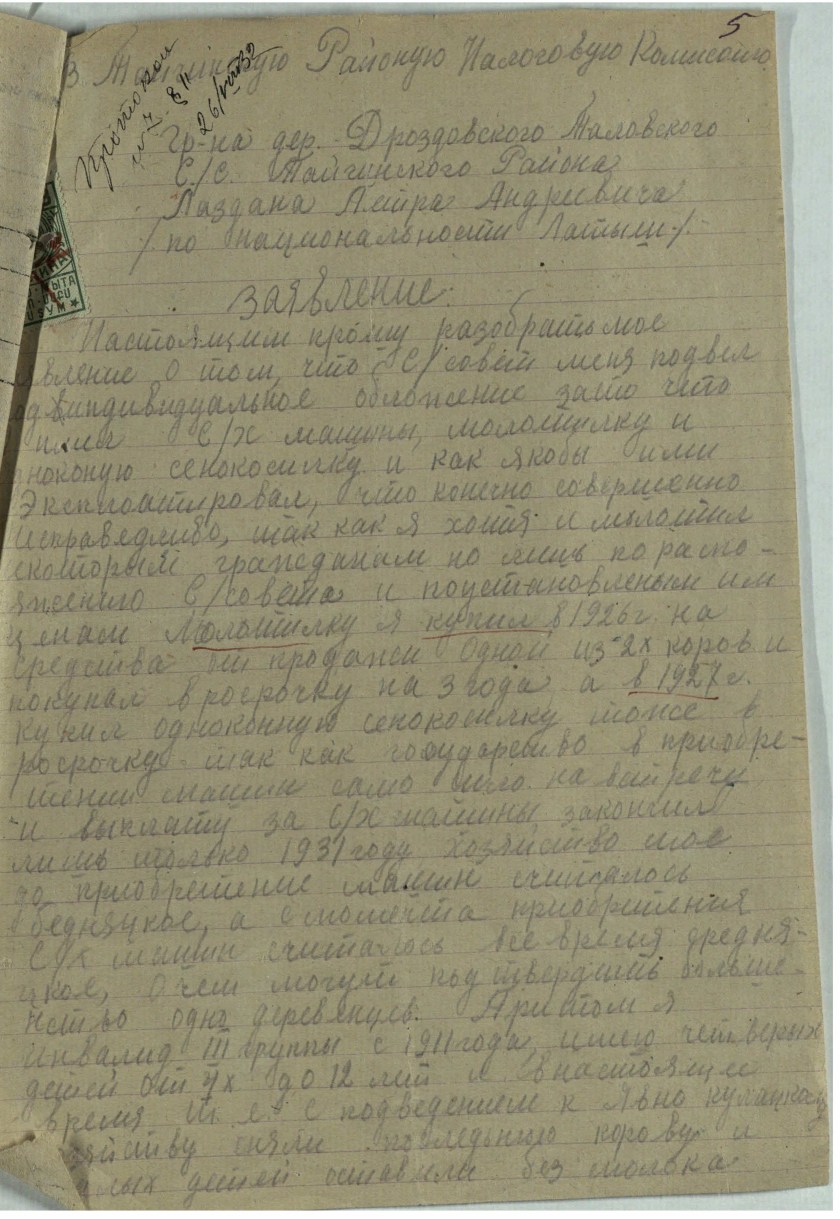 5
В Тайгинскую Районую Налоговую Комисию
Протокол
№ 7. § 11
26/VIII 32
Гр-на дер. Дроздовского Таловского
С./С. Тайгинского Района
Лаздана Петра Андреевича
/ по национальности Латыш /.
Заявление.
Настоящим прошу разобрать мое
явление о том, что С/совет меня подвел
од индивидуальное обложение зато что
имел С/Х машины, молотилку и
дноконую сенокосилку и как якобы ими
Эксплоатировал, что конечно совершенно
несправедливо, так как я хотя и молотил
екоторым гражданам но лишь по распо-
яжению С/совета и поустановленым им
ценам Молотилку я купил в 1926 г. на
средства от продажи одной из 2х коров и
покупал в росрочку на 3 года а в 1927 г.
купил одноконную сенокосилку тоже в
росрочку так как государство в приобре-
тении машин само шло на встречу
и выплату за С/Х машины закончил
лишь только 1931 году хозяйство мое
до приобретение машин считалось
бедняцкое, а с момента приобритения
С/Х машин считалось все время средня-
цкое, о чем могут подтвердить больше-
нство одно деревенцев. Притом я
инвалид III группы с 1911 года, имею четверых
детей от 4х до 12 лет и внастоящее
время т. е. с подведением к явно кулацкому
зяйству сняли последнюю корову и
алых детей оставили без молока